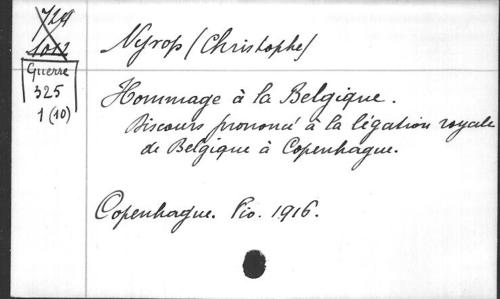 Nyrop (Christophe)
Guerre
325
1 (10)
Hommage à la Belgique.
Discours prononcé à la légation royale
de Belgique à Copenhague.
Copenhague. Pio. 1916.